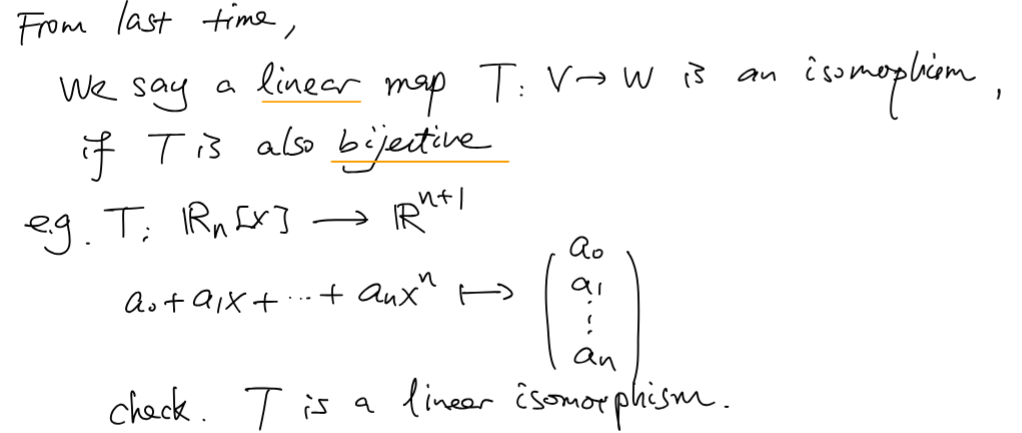 From last time,
We say a linear map T: V → W is an isomophism,
if T is also bijective
e.g. T: ℝₙ[x] ⟶ ℝⁿ⁺¹
a₀ + a₁x + ··· + aₙxⁿ ⟼ (a₀ a₁ ⋮ aₙ)
check. T is a linear isomorphism.